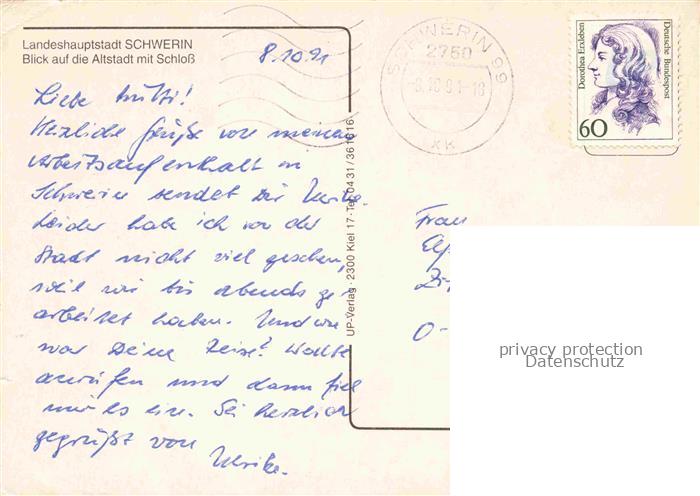 Landeshauptstadt SCHWERIN
Blick auf die Altstadt mit Schloß
8.10.91
Liebe Mutti!
Herzliche Grüße von meinem
Arbeitsaufenthalt in
Schwerin sendet Dir Ulrike.
Leider habe ich von der
Stadt nicht viel gesehen,
weil wir bis abends ge-
arbeitet haben. Und wie
war Deine Reise? Wollte
anrufen und dann fiel
mir es ein. Sei herzlich
gegrüßt von
Ulrike.
UP-Verlag · 2300 Kiel 17 · Tel. 04 31 / 36 10 16
SCHWERIN 99
2750
-8.10.91-16
xk
Dorothea Erxleben
Deutsche Bundespost
60
Frau
O-
privacy protection
Datenschutz